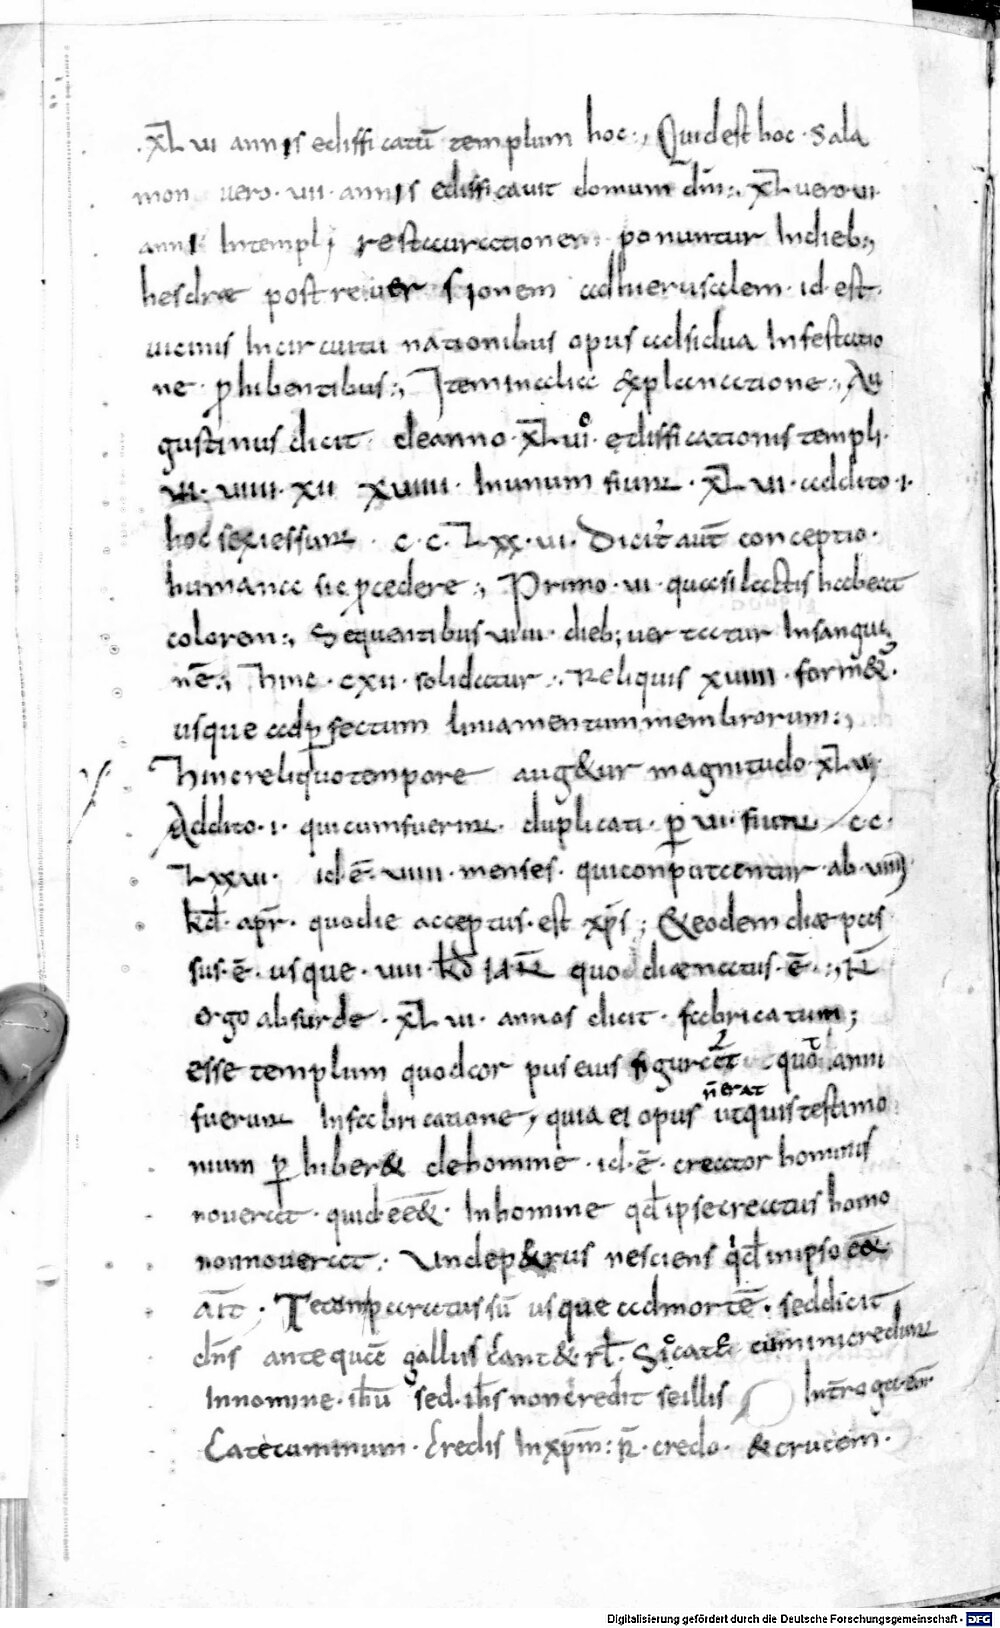 .XL VI annis ediffi catū templum hoc·, Quidest hoc · Sala
mon vero · vii · annis ediffi cavit domum dn̄i:, XL vero · vi ·
anni Intempli restaurationem ponuntur Indieb;,
hesdræ post reuer sionem adhierusalem · id · est ·
uicinis Incircuitu nationibus opus adsidua Infestatio
ne · ꝓhibentibus:, Iteminalia explanatione:, Au
gustinus dicit · deanno · XL VIº · ędiffi cationis templi ·
VI · VIIII · XII XVIIII · Inunum fiunt · XL VI · addito · I ·
hoc sexiessunt · C · C · LXX · VI · Dicit aut̄ conceptio ·
humana sic ꝓcedere:, Primo · VI · quasi lactis habeat
colorem:, Sequentibus VIIII · dieb; uertatur Insangui
nē:, hinc · CXII · solidatur:. Reliquis XVIIII · form& ·
usque adꝑfectum liniamentummembrorum:,
hincreliquotempore aug&ur magnitudo · XL VI ·
Addito · I · quicumfuerint · duplicati · ꝑ VI · fiunt CC ·
LXXVI · id · ē · VIIII · menses · quiconputantur · ab · VIIII
kl̄ · apr̄ · quodie acceptus · est xp̄s ; &eodem diæ pas
sus · ē · usque · VIII · kl̄ IAN̄ quo diænatus · ē ·:, N̄
ergo absurde · XL VI · annos dicit · fabricatum ;
esse templum quodcor pus eius figurat quot anni
fuerunt Infabricatione, quia ei opus n̄ erat utquistestimo
nium ꝑ hiber& dehomine · id · ē · creator hominis
noverat · quid · eē& · Inhomine qd̄ ipsecreatus homo
nonnouerat:· Undep&rus nesciens qd̄ inipso eē&
ait · Tecumparatus sū usque admortē · seddicit
dn̄s antequā gallus cant& · rl̄ · Sic at &cumini credunt
Innomine · ih̄u sed · ih̄s noncredit seillis Intr̄roga · eor̄
Catecuminum · Credis Inxp̄m : R̄ · credo · &crucem ·